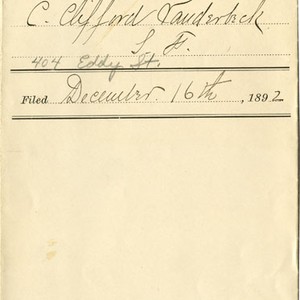 C. Clifford Vanderbeck
S. F.
404 Eddy St.
Filed December 16th, 1892